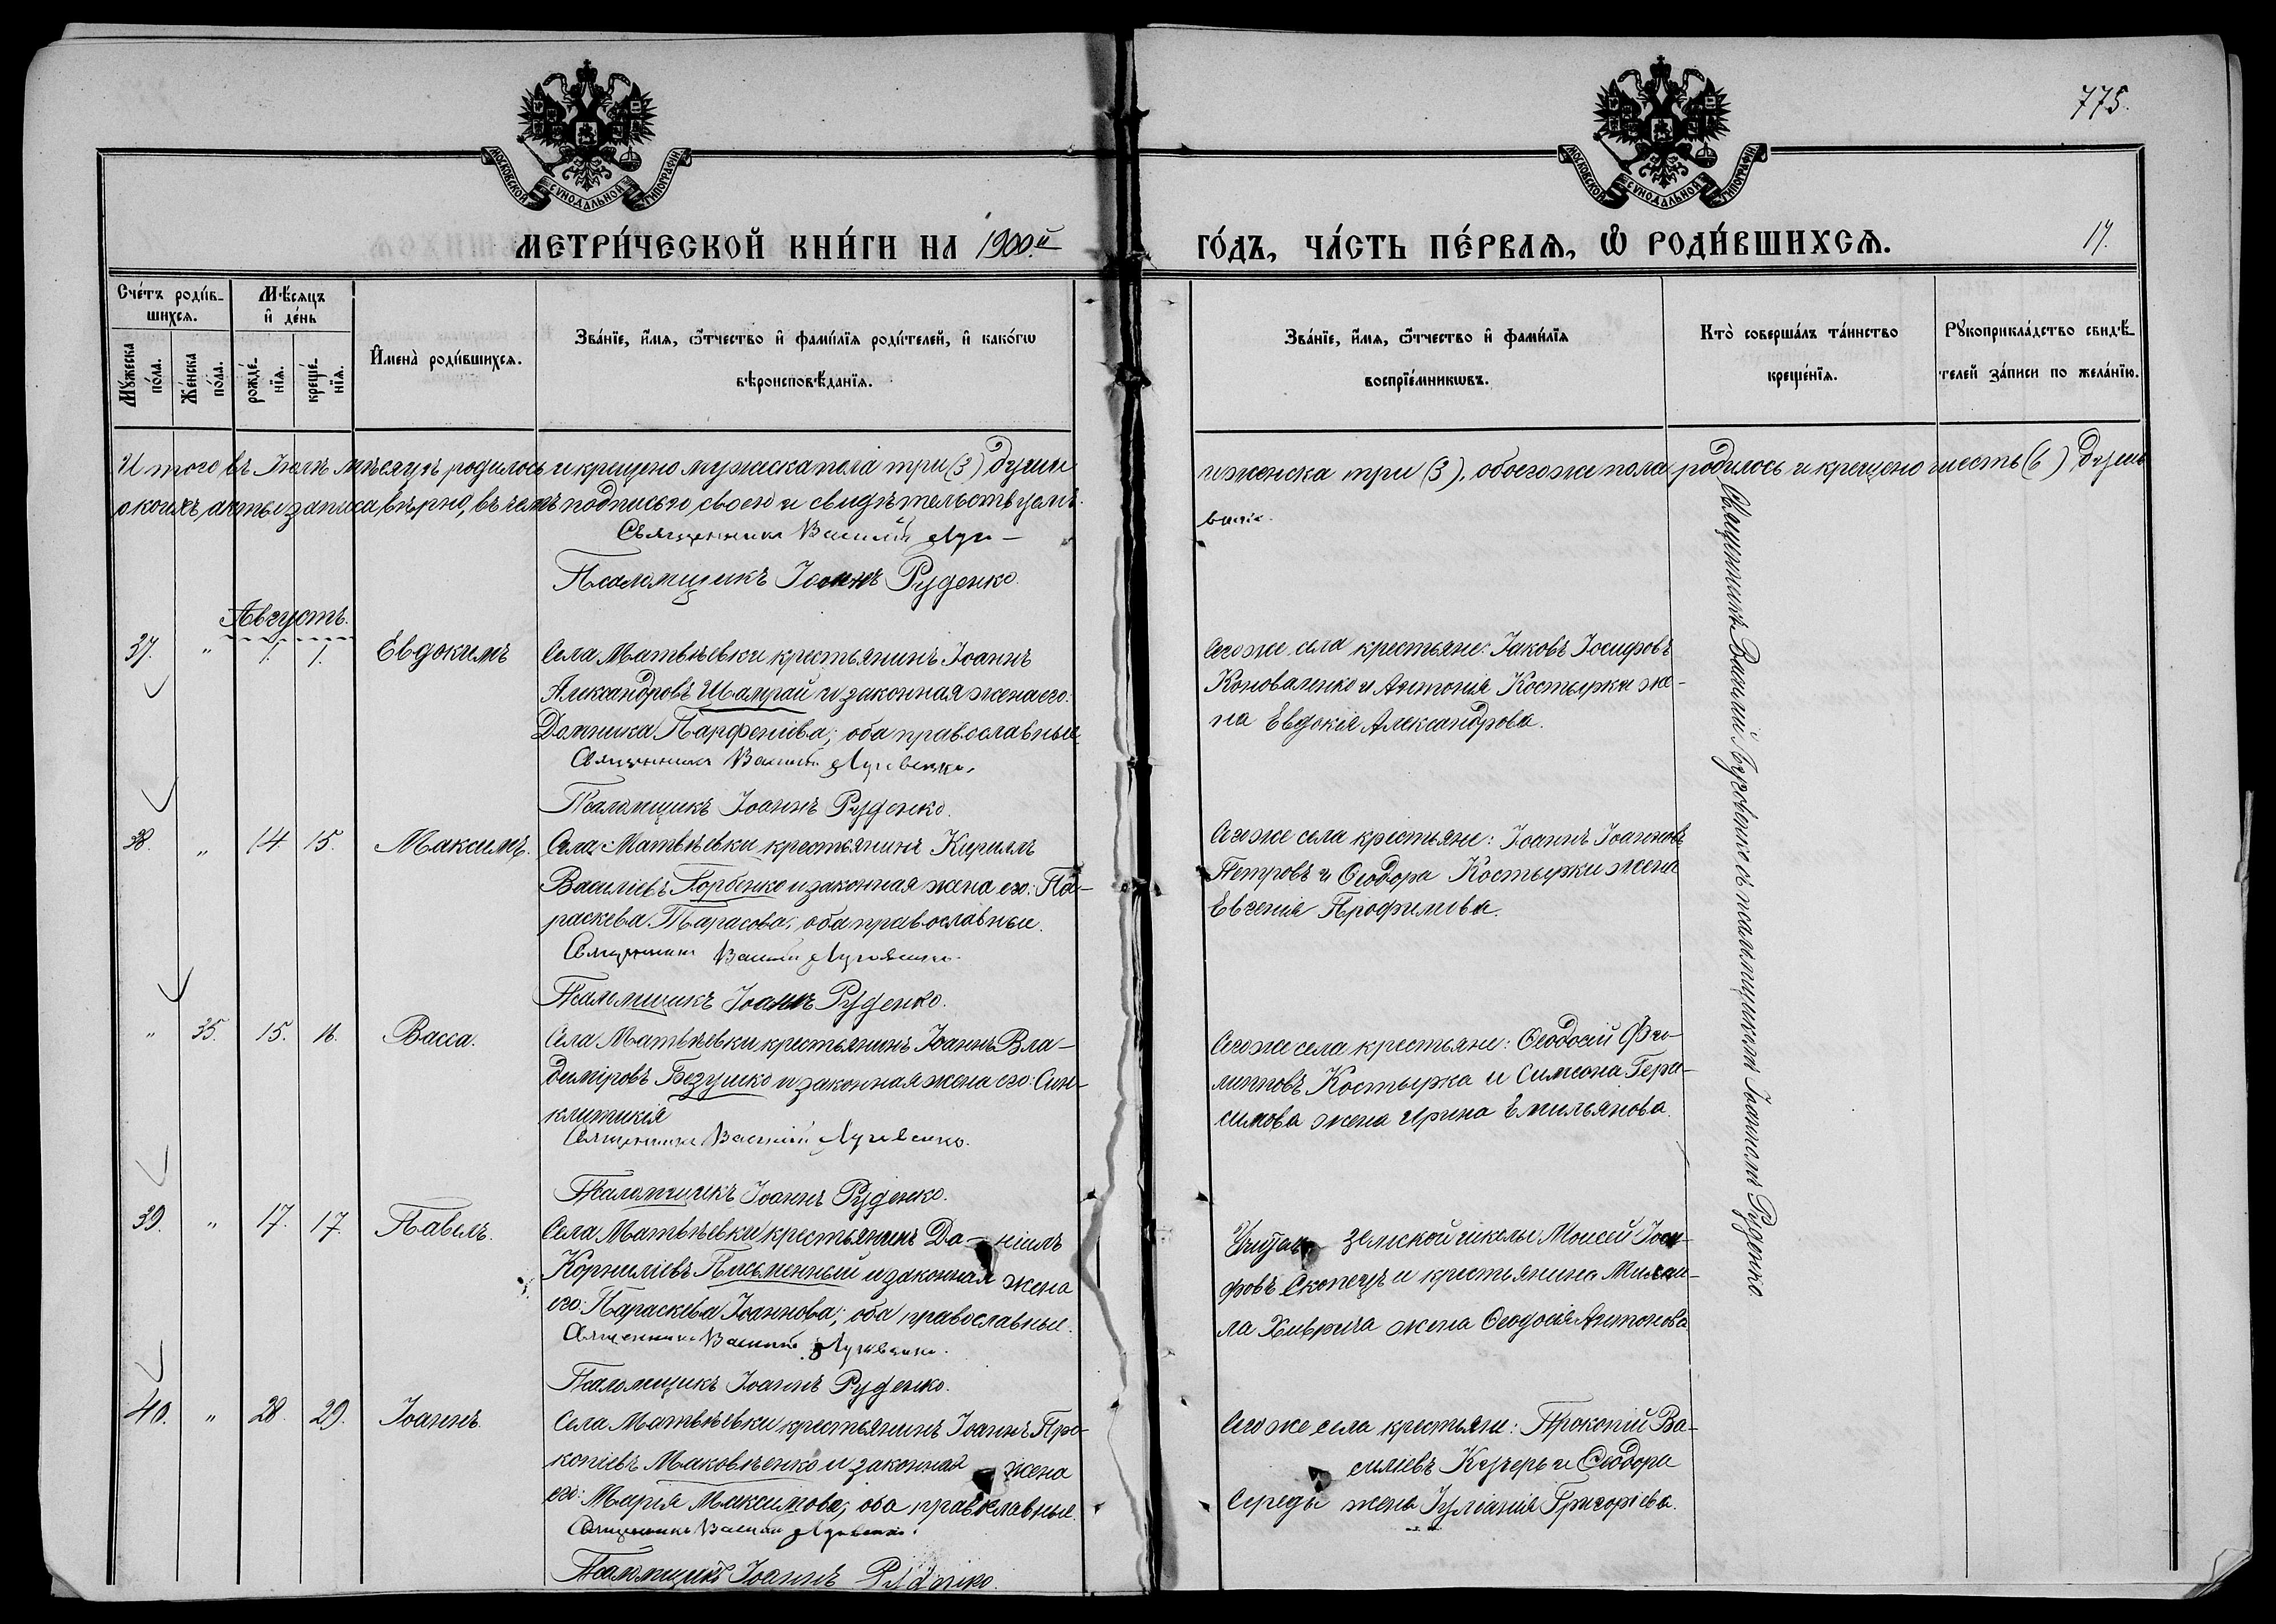 775.
МОСКОВСКОЙ СУНОДАЛЬНОЙ ТИПОГРАФІИ
МОСКОВСКОЙ СУНОДАЛЬНОЙ ТИПОГРАФІИ
МЕТРИ́ЧЕСКОЙ КНИ́ГИ НА 1900.й ГО́ДЪ, ЧА́СТЬ ПЕ́РВАѦ, Ѡ РОДИ́ВШИХСѦ.
17.
Сче́тъ роди́в-
шихсѧ.
Мꙋ́жеска по́ла.
Же́нска по́ла.
Мѣ́сѧцъ и де́нь
рожде́-
нїѧ.
креще́-
нїѧ.
Имена̀ роди́вшихсѧ.
Зва́нїе, и́мѧ, ѻ́тчество и фами́лїѧ роди́телей, и како́гѡ
вѣроисповѣ́данїѧ.
Зва́нїе, и́мѧ, ѻ́тчество и фами́лїѧ
воспрїе́мникѡвъ.
Кто̀ соверша́лъ та́инство
креще́нїѧ.
Рꙋкоприкла́дство свидѣ́-
телей за́писи по жела́нїю.
Итого въ Іюлѣ мѣсяцѣ родилось и крещено мужеска пола три (3) души
и женска три (3), обоего же пола родилось и крещено шесть (6) душъ
о коихъ акты записа вѣрно, въ чемъ подписью своею и свидѣтельствуемъ.
Священникъ Василій
Псаломщикъ Іоаннъ Руденко.
Августъ.
37. " 1. 1. Евдокимъ
Села Матвѣевки крестьянинъ Іоаннъ
Александровъ Шамрай и законная жена его:
Домника Парфеніева; оба православные.
Священникъ Василій
Псаломщикъ Іоаннъ Руденко.
Того же села крестьяне: Іаковъ Іосифовъ
Коноваленко и Антонія Костырки же-
на Евдокія Александрова.
Священникъ Василій съ псаломщикомъ Іоанномъ Руденко
38. " 14 15. Максимъ.
Села Матвѣевки крестьянинъ Кириллъ
Василіевъ Горбенко и законная жена его: Па-
раскева Тарасова; оба православные.
Священникъ Василій
Псаломщикъ Іоаннъ Руденко.
Того же села крестьяне: Іоаннъ Іоанновъ
Петровъ и Ѳеодора Костырки жена
Евгенія Трофимова.
" 35. 15. 16. Васса.
Села Матвѣевки крестьянинъ Іоаннъ Вла-
диміровъ Безушко и законная жена его: Син-
клитикія
Священникъ Василій
Псаломщикъ Іоаннъ Руденко.
Того же села крестьяне: Ѳеодосій Фи-
липповъ Костырка и Симеона Гера-
симова жена Ирина Емильянова.
39. " 17. 17. Павелъ.
Села Матвѣевки крестьянинъ Да-ніилъ
Корниліевъ Письменный и законная жена
его: Параскева Іоаннова; оба православные.
Священникъ Василій
Псаломщикъ Іоаннъ Руденко.
земской школы Моисей Іоси-
фовъ Скопецъ и крестьянина Михаи-
ла жена Ѳеодосія Антонова
40. " 28. 29. Іоаннъ.
Села Матвѣевки крестьянинъ Іоаннъ Про-
копіевъ Маковѣенко и законная жена
его: Марія Максимова; оба православные.
Священникъ Василій
Псаломщикъ Іоаннъ Руденко.
Того же села крестьяне: Прокопій Ва-
силіевъ Кучеръ и Ѳеодора
Середы жена Іуліанія Григоріева.